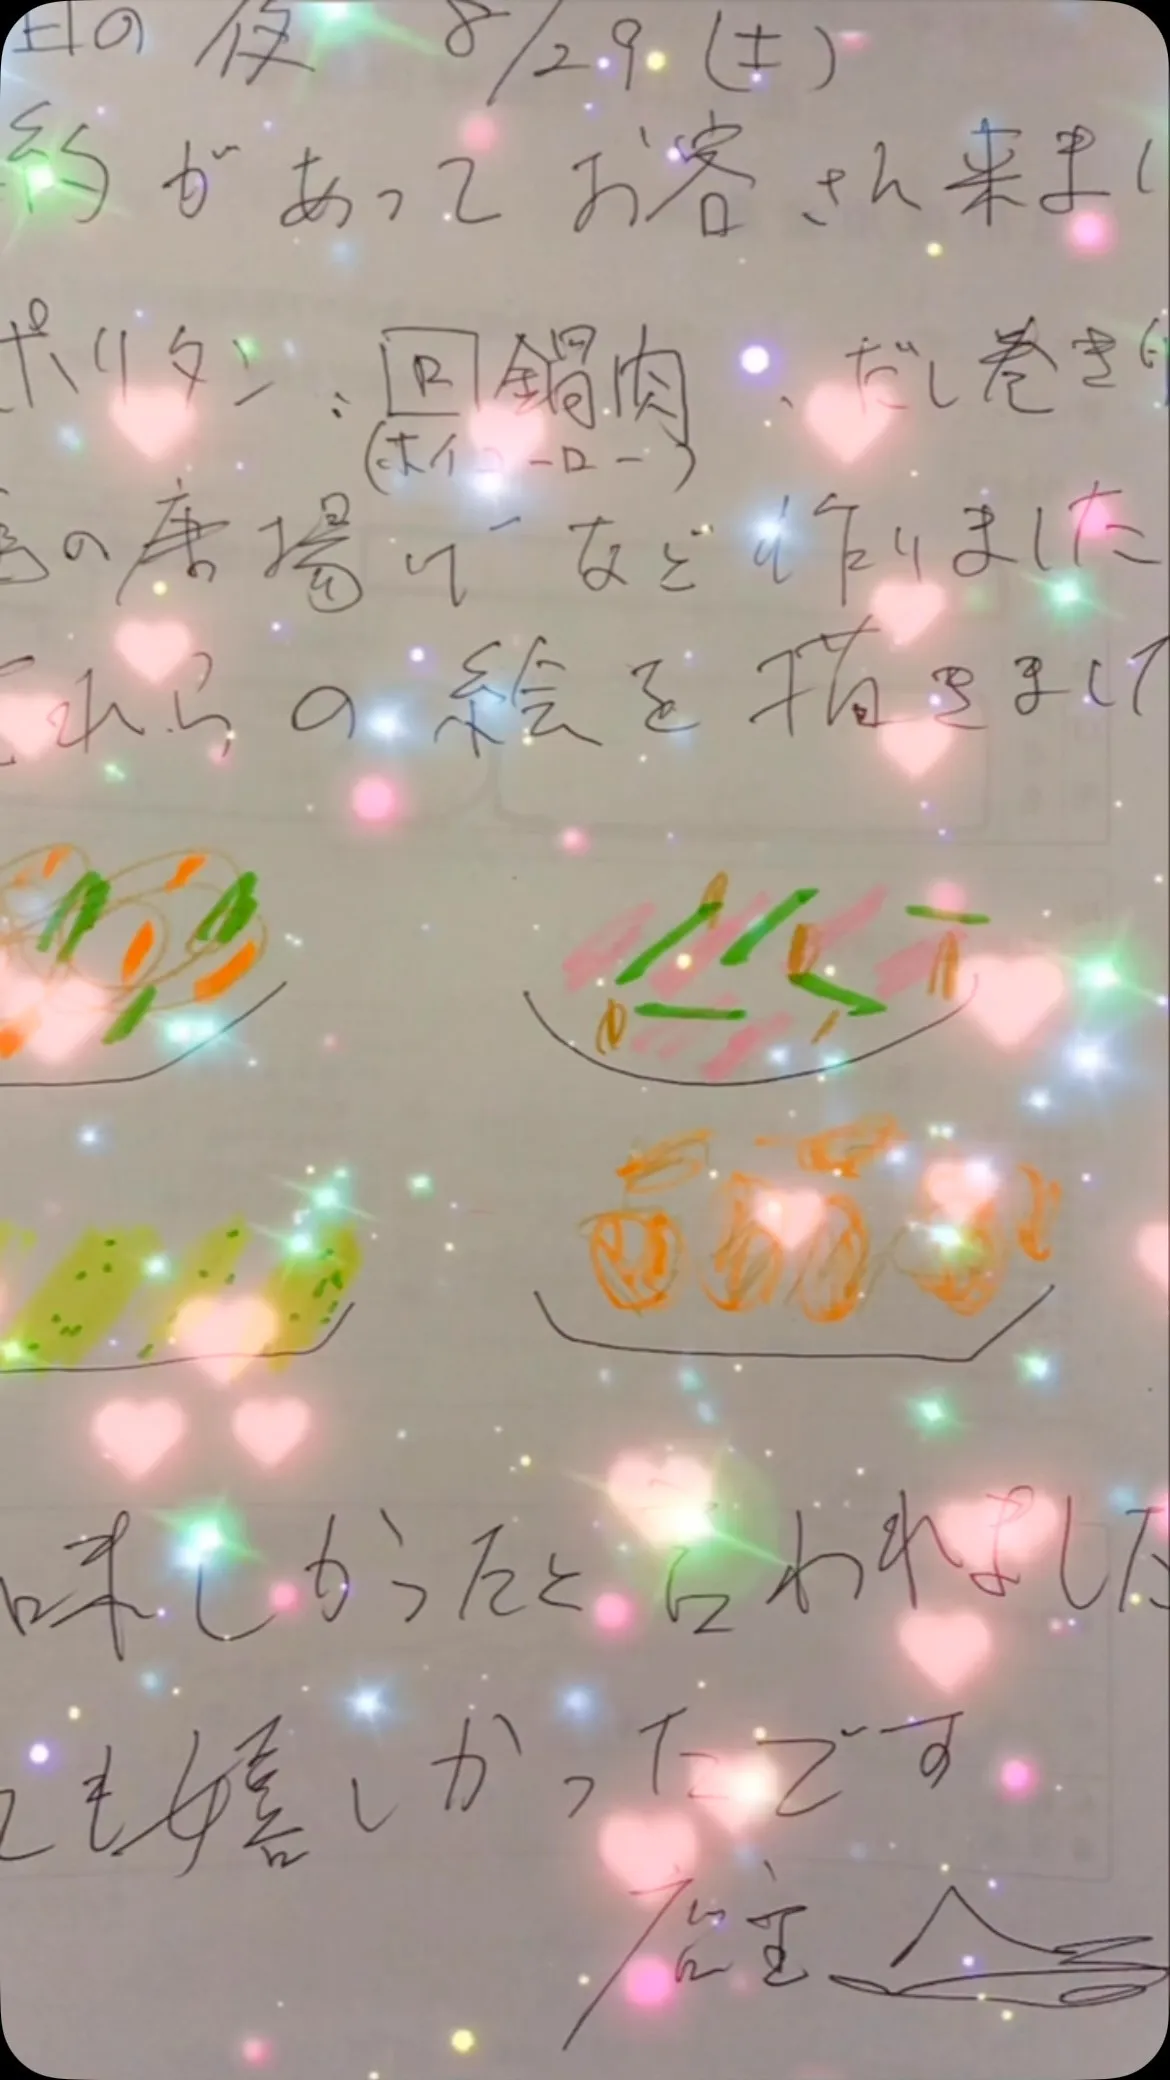 日の夜 8/29(土)
約があってお客さん来まし
ポリタン、回鍋肉、だし巻き
(ホイコーロー)
の唐揚げなど作りました
これらの絵を描きまして
味しかったと言われました
ても嬉しかったです
店主